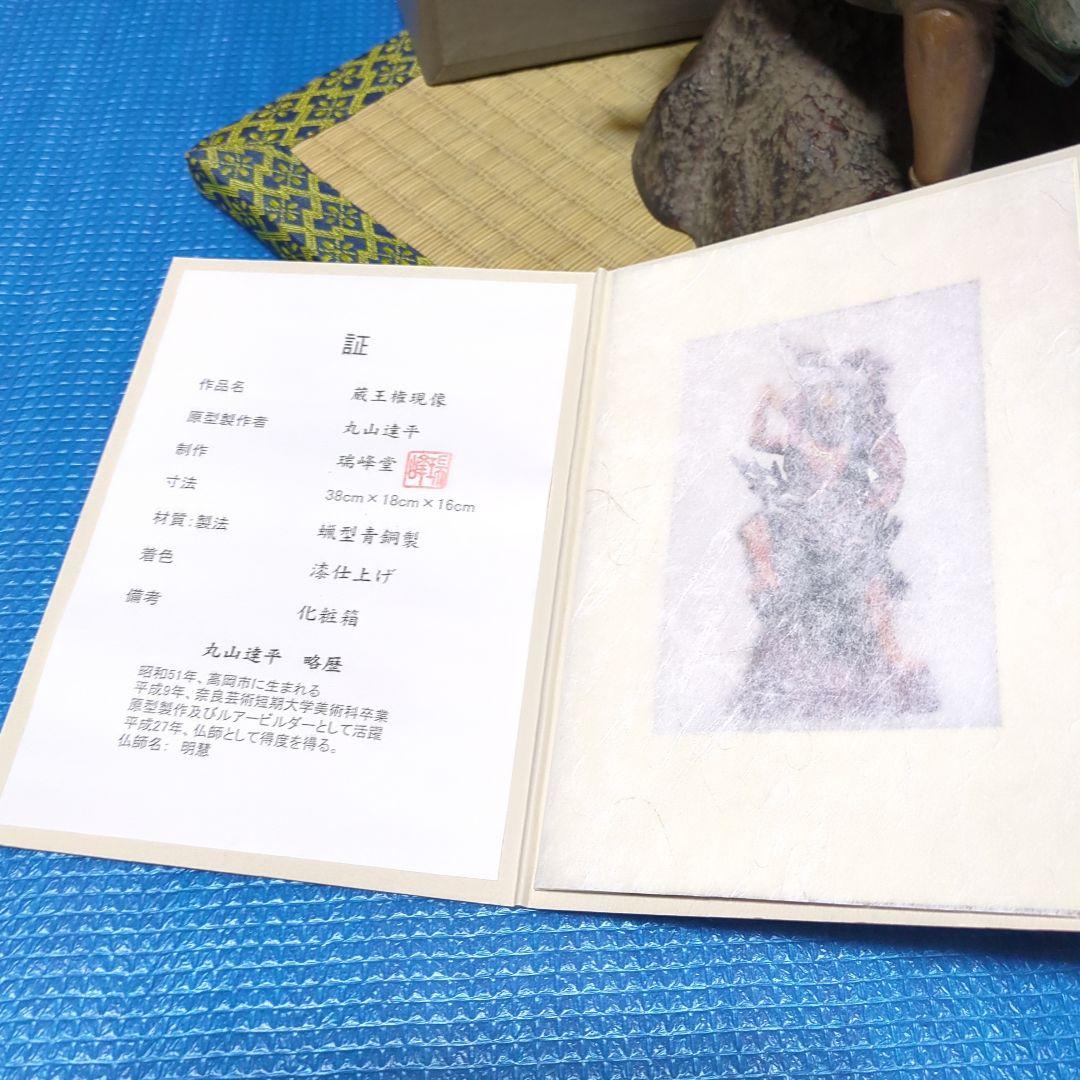 証
作品名 蔵王権現像
原型製作者 丸山達平
制作 瑞峰堂 瑞峰
寸法 38cm×18cm×16cm
材質:製法 蝋型青銅製
着色 漆仕上げ
備考 化粧箱
丸山達平 略歴
昭和51年、高岡市に生まれる
平成9年、奈良芸術短期大学美術科卒業
原型製作及びルアービルダーとして活躍
平成27年、仏師として得度を得る。
仏師名: 明慧